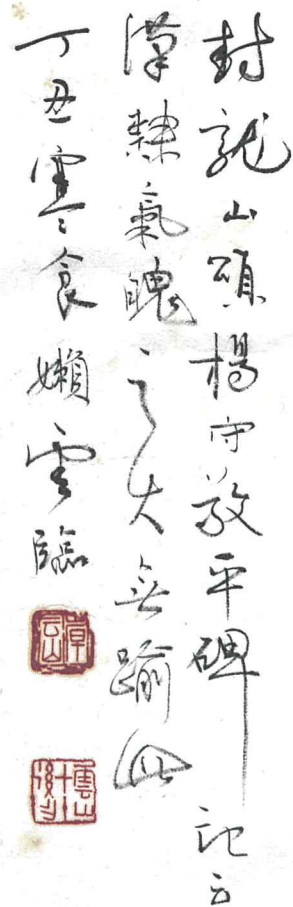 封龍山頌楊守敬平碑記云
漢隸氣魄之大無踰此
丁丑寒食嬾雲臨